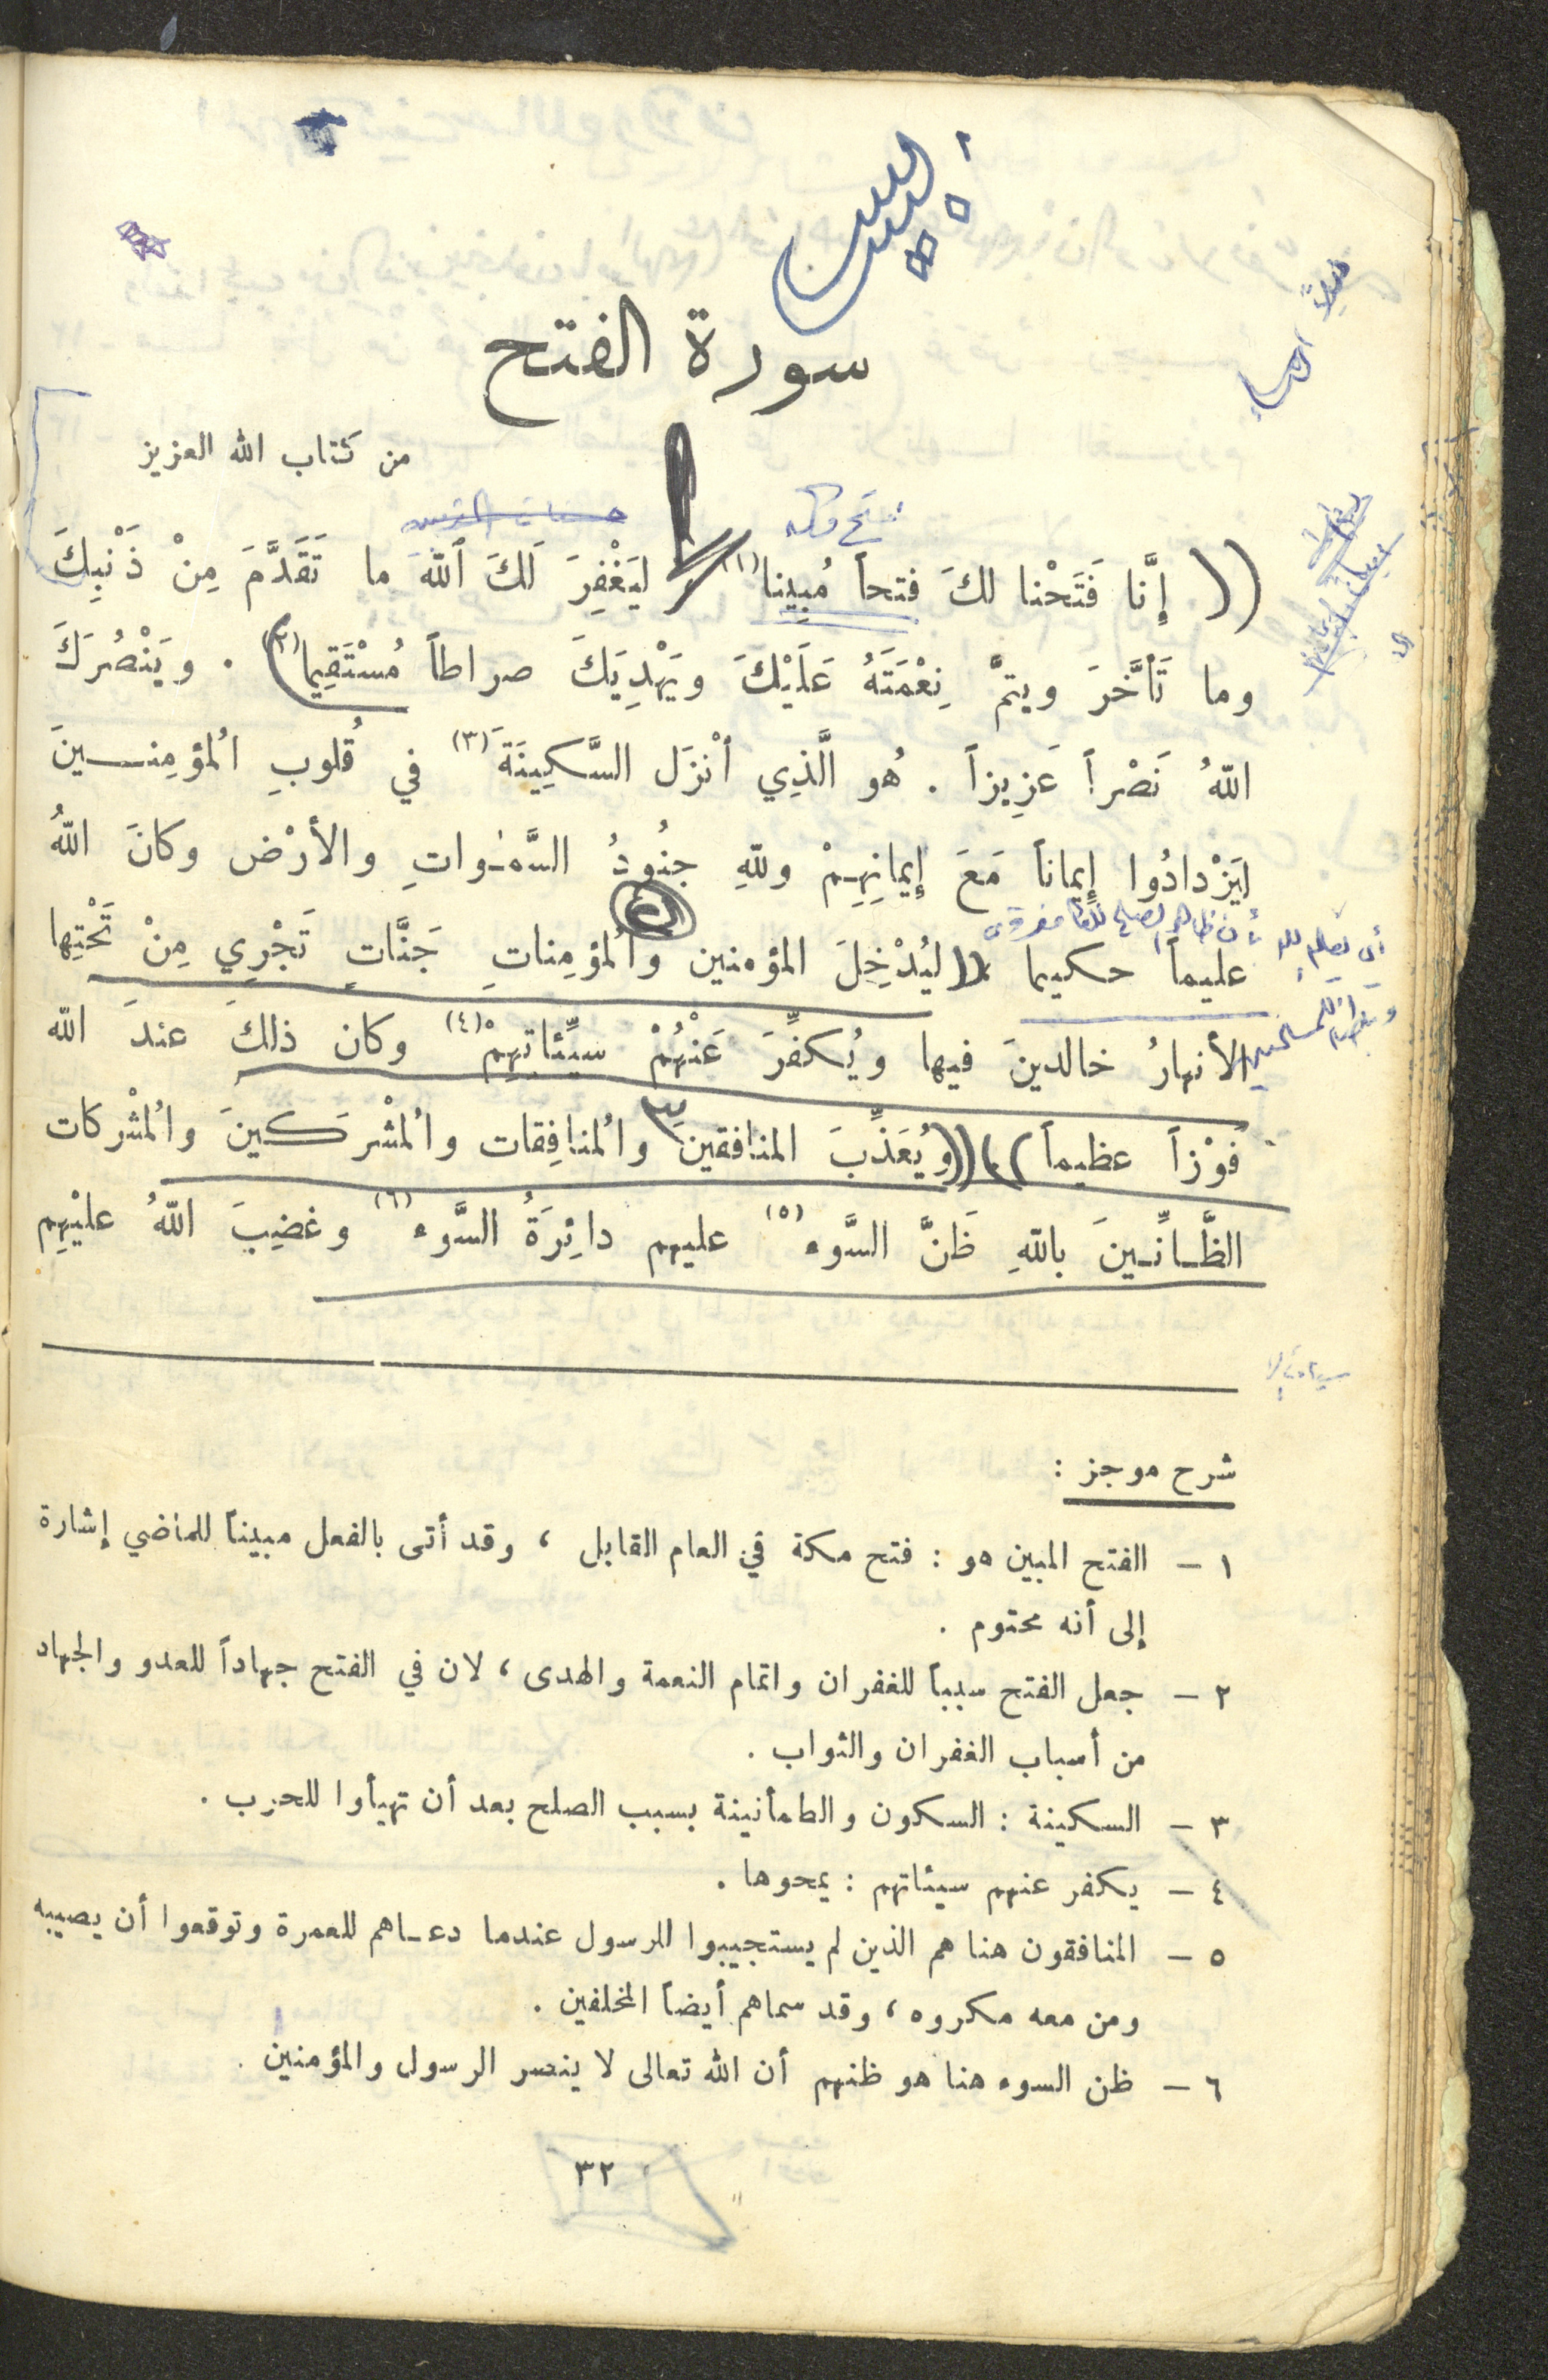 سورة الفتح
من كتاب الله العزيز
فتح مكة
إِنَّا فَتَحْنا لكَ فتحاً مُبِينا (١) لِيَغْفِرَ لَكَ ٱللهُ ما تَقَدَّمَ مِنْ ذَنْبِكَ
وما تَأَخَّرَ ويتمَّ نِعْمَتَهُ عَلَيْكَ ويَهْدِيَكَ صراطاً مُسْتَقِيما (٢) . ويَنْصُرَكَ
اللهُ نَصْراً عَزِيزاً . هُو الَّذِي أنْزَل السَّكِينَةَ (٣) في قُلوبِ الْمؤمِنــينَ
لِيَزْدادُوا إِيماناً مَعَ إِيمانِهِمْ وللهِ جنُودُ السَّمٰواتِ والأرْض وكانَ اللهُ
عليماً حكيما . لِيُدْخِلَ المؤمنين والْمؤمِناتِ جَنَّاتٍ تَجْرِي مِنْ تَحْتِها
الأنهارُ خالدينَ فيها ويُكفِّرَ عَنْهُمْ سيِّئاتِهِمْ (٤) وكان ذلكَ عندَ الله
فَوْزاً عظيماً . ويُعَذِّبَ المنافقين والْمنافِقات والْمشْرِكينَ والْمشْركات
الظَّـانِّـينَ باللهِ ظَنَّ السَّوء (٥) عليهم دائِرَةُ السَّوء (٦) وغضِبَ اللهُ عليْهِم
شرح موجز :
١ - الفتح المبين هو : فتح مكة في العام القابل ، وقد أتى بالفعل مبيناً للماضي إشارة
إلى أنه محتوم .
٢ - جعل الفتح سبباً للغفران واتمام النعمة والهدى ، لان في الفتح جهاداً للعدو والجهاد
من أسباب الغفران والثواب .
٣ - السكينة : السكون والطمأنينة بسبب الصلح بعد أن تهيأوا للحرب .
٤ - يكفر عنهم سيئاتهم : يمحوها .
٥ - المنافقون هنا هم الذين لم يستجيبوا للرسول عندما دعـاهم للعمرة وتوقعوا أن يصيبه
ومن معه مكروه ، وقد سماهم أيضاً المخلفين .
٦ - ظن السوء هنا هو ظنهم أن الله تعالى لا ينصر الرسول والمؤمنين .
٣٢